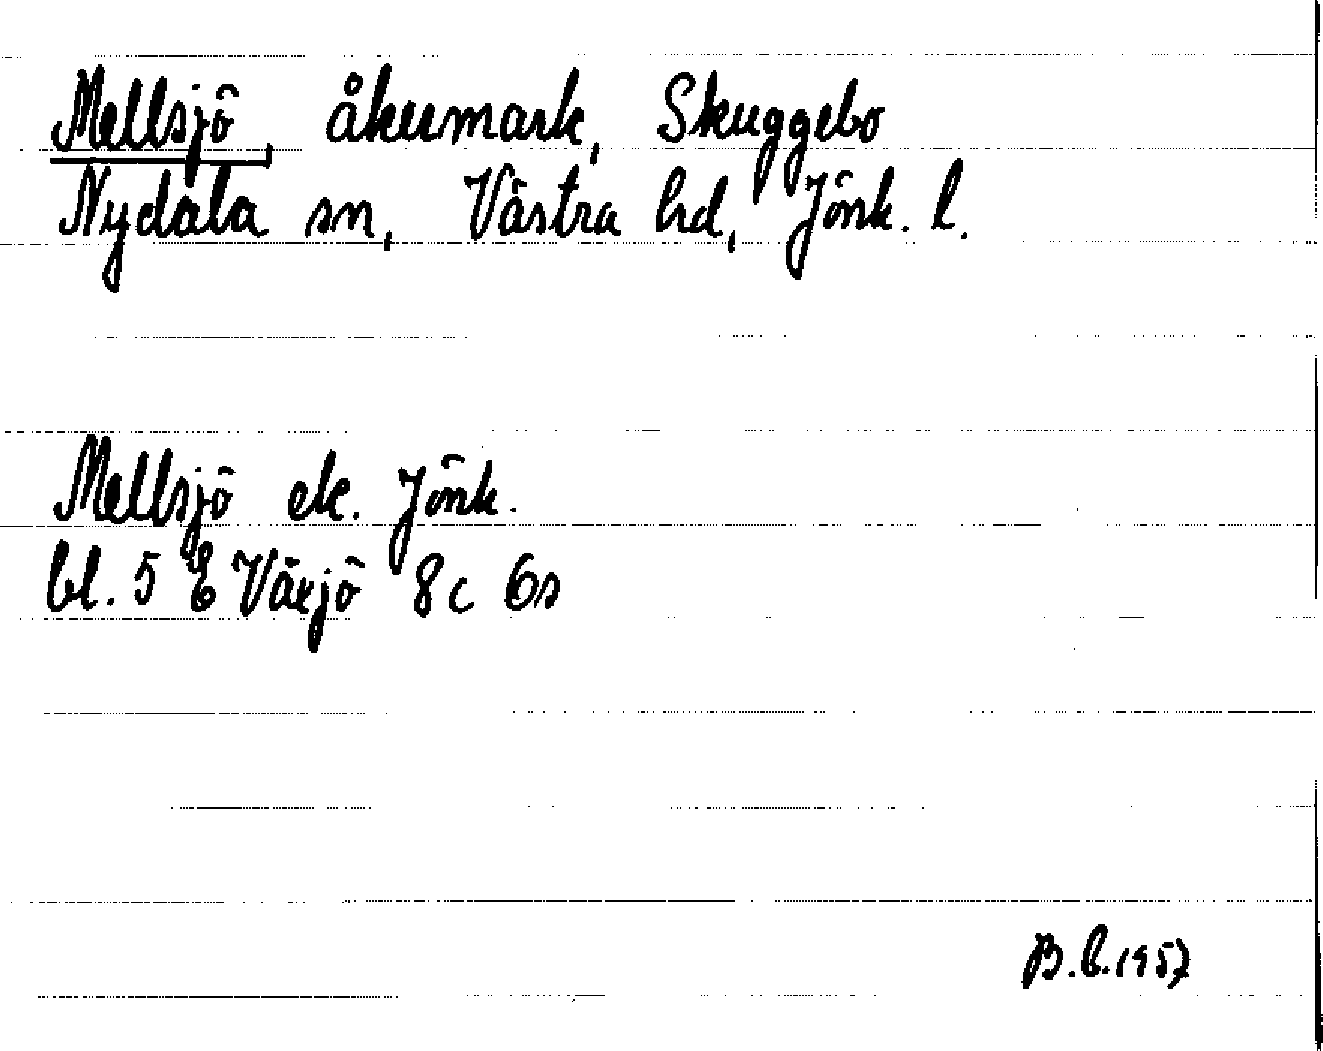 Mellsjö, åkermark, Skuggebo
Nydala sn, Västra hd, Jönk. l.
Mellsjö ek. Jönk.
bl. 5 E Växjö 8c 6s
B.b.1957